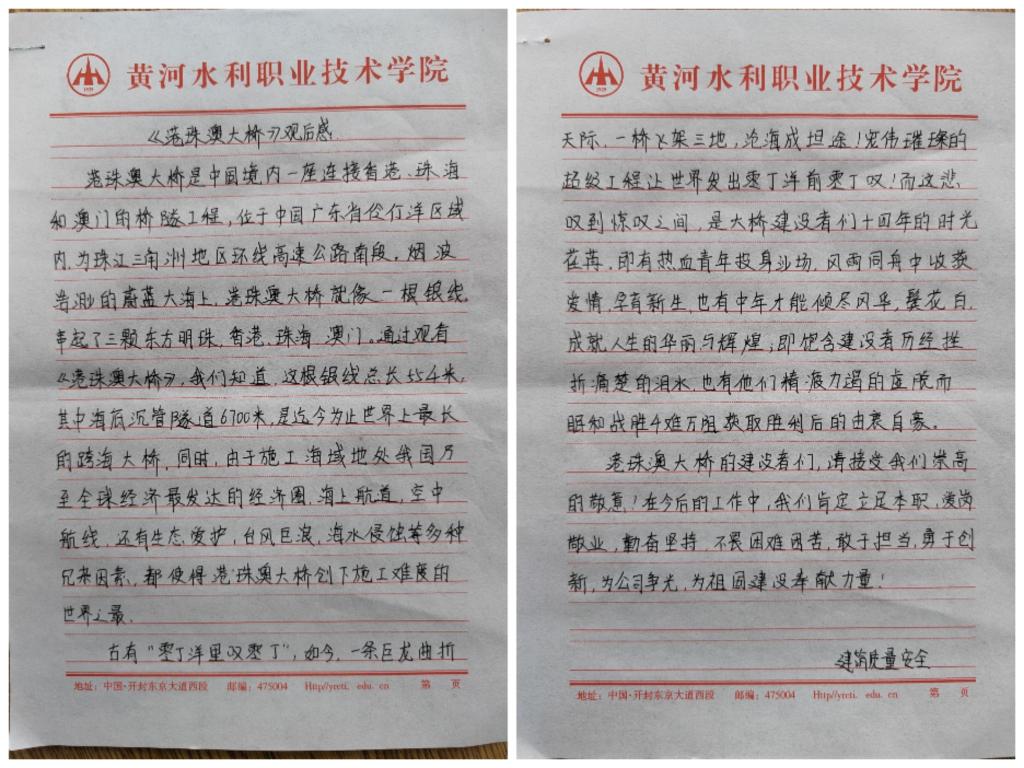 黄河水利职业技术学院
《港珠澳大桥》观后感
港珠澳大桥是中国境内一座连接香港、珠海
和澳门的桥隧工程,位于中国广东省伶仃洋区域
内,为珠江三角洲地区环线高速公路南段。烟波
浩渺的蔚蓝大海上,港珠澳大桥就像一根银线,
串起了三颗东方明珠,香港、珠海、澳门。通过观看
《港珠澳大桥》,我们知道,这根银线总长55.4米,
其中海底沉管隧道6700米,是迄今为止世界上最长
的跨海大桥,同时,由于施工海域地处我国乃
至全球经济最发达的经济圈,海上航道,空中
航线,还有生态爱护,台风巨浪,海水侵蚀等多种
因素,都使得港珠澳大桥创下施工难度的
世界之最。
古有“零丁洋里叹零丁”,如今,一条巨龙曲折
地址:中国·开封东京大道西段 邮编:475004 Http//yrcti. edu. cn 第 页
黄河水利职业技术学院
1929
天际,一桥飞架三地,沧海成坦途!宏伟璀璨的
超级工程让世界发出零丁洋前零丁叹!而这悲
叹到惊叹之间,是大桥建设者们十四年的时光
荏苒,即有热血青年投身沙场,风雨同舟中收获
爱情,孕育新生,也有中年才能倾尽风华,鬓花白,
成就人生的华丽与辉煌;即饱含建设者历经挫
折痛楚的泪水,也有他们精液力竭的虚脱而
昭和战胜千难万阻获取胜利后的由衷自豪。
港珠澳大桥的建设者们,请接受我们崇高
的敬意!在今后的工作中,我们肯定立足本职,爱岗
敬业,勤奋坚持,不畏困难困苦,敢于担当,勇于创
新,为公司争光,为祖国建设奉献力量!
建筑质量安全
地址:中国·开封东京大道西段 邮编:475004 Http//yrcti. edu. cn 第 页